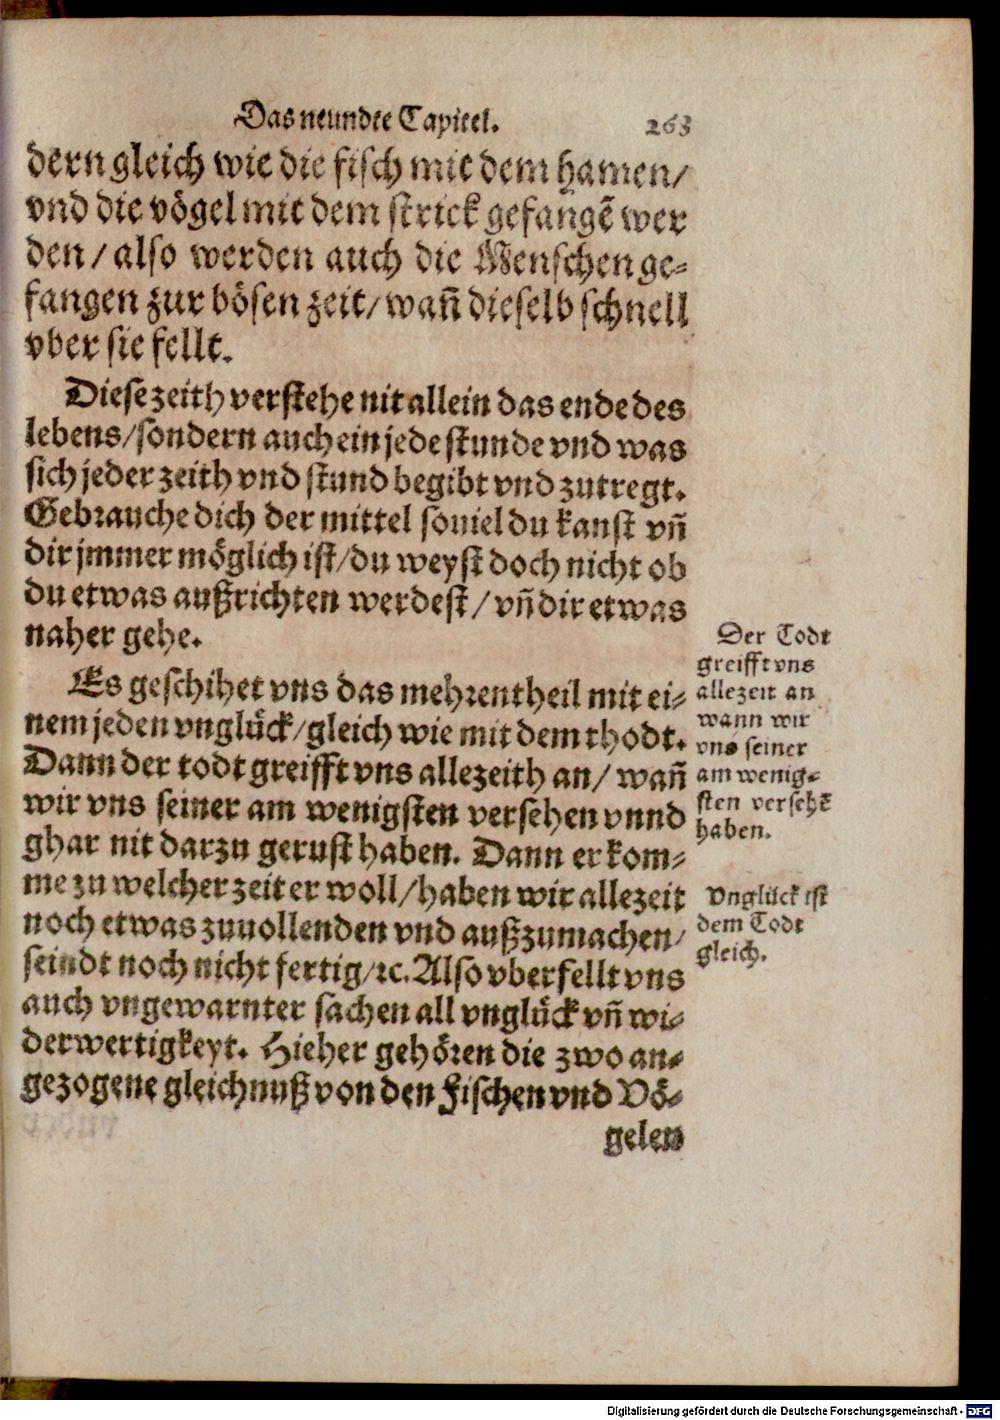 Das neundte Capitel. 263
dern gleich wie die fisch mit dem hamen/
vnd die vögel mit dem strick gefangē wer
den/ also werden auch die Menschen ge-
fangen zur bösen zeit/ wañ dieselb schnell
vber sie fellt.
Diese zeith verstehe nit allein das ende des
lebens/ sondern auch ein jede stunde vnd was
sich jeder zeith vnd stund begibt vnd zutregt.
Gebrauche dich der mittel souiel du kanst vñ
dir jmmer möglich ist/ du weyst doch nicht ob
du etwas außrichten werdest/ vñ dir etwas
naher gehe.
Es geschihet vns das mehrentheil mit ei-
nem jeden vnglück/ gleich wie mit dem thodt.
Dann der todt greifft vns allezeith an/ wañ
wir vns seiner am wenigsten versehen vnnd
ghar nit darzu gerust haben. Dann er kom-
me zu welcher zeit er woll/ haben wir allezeit
noch etwas zuuollenden vnd außzumachen/
seindt noch nicht fertig/ ꝛc. Also vberfellt vns
auch vngewarnter sachen all vnglück vñ wi-
derwertigkeyt. Hieher gehören die zwo an-
gezogene gleichnuß von den Fischen vnd Vö-
gelen
Der Todt
greifft vns
allezeit an
wann wir
vns seiner
am wenig-
sten versehē
haben.
Vnglück ist
dem Todt
gleich.
Digitalisierung gefördert durch die Deutsche Forschungsgemeinschaft - DFG